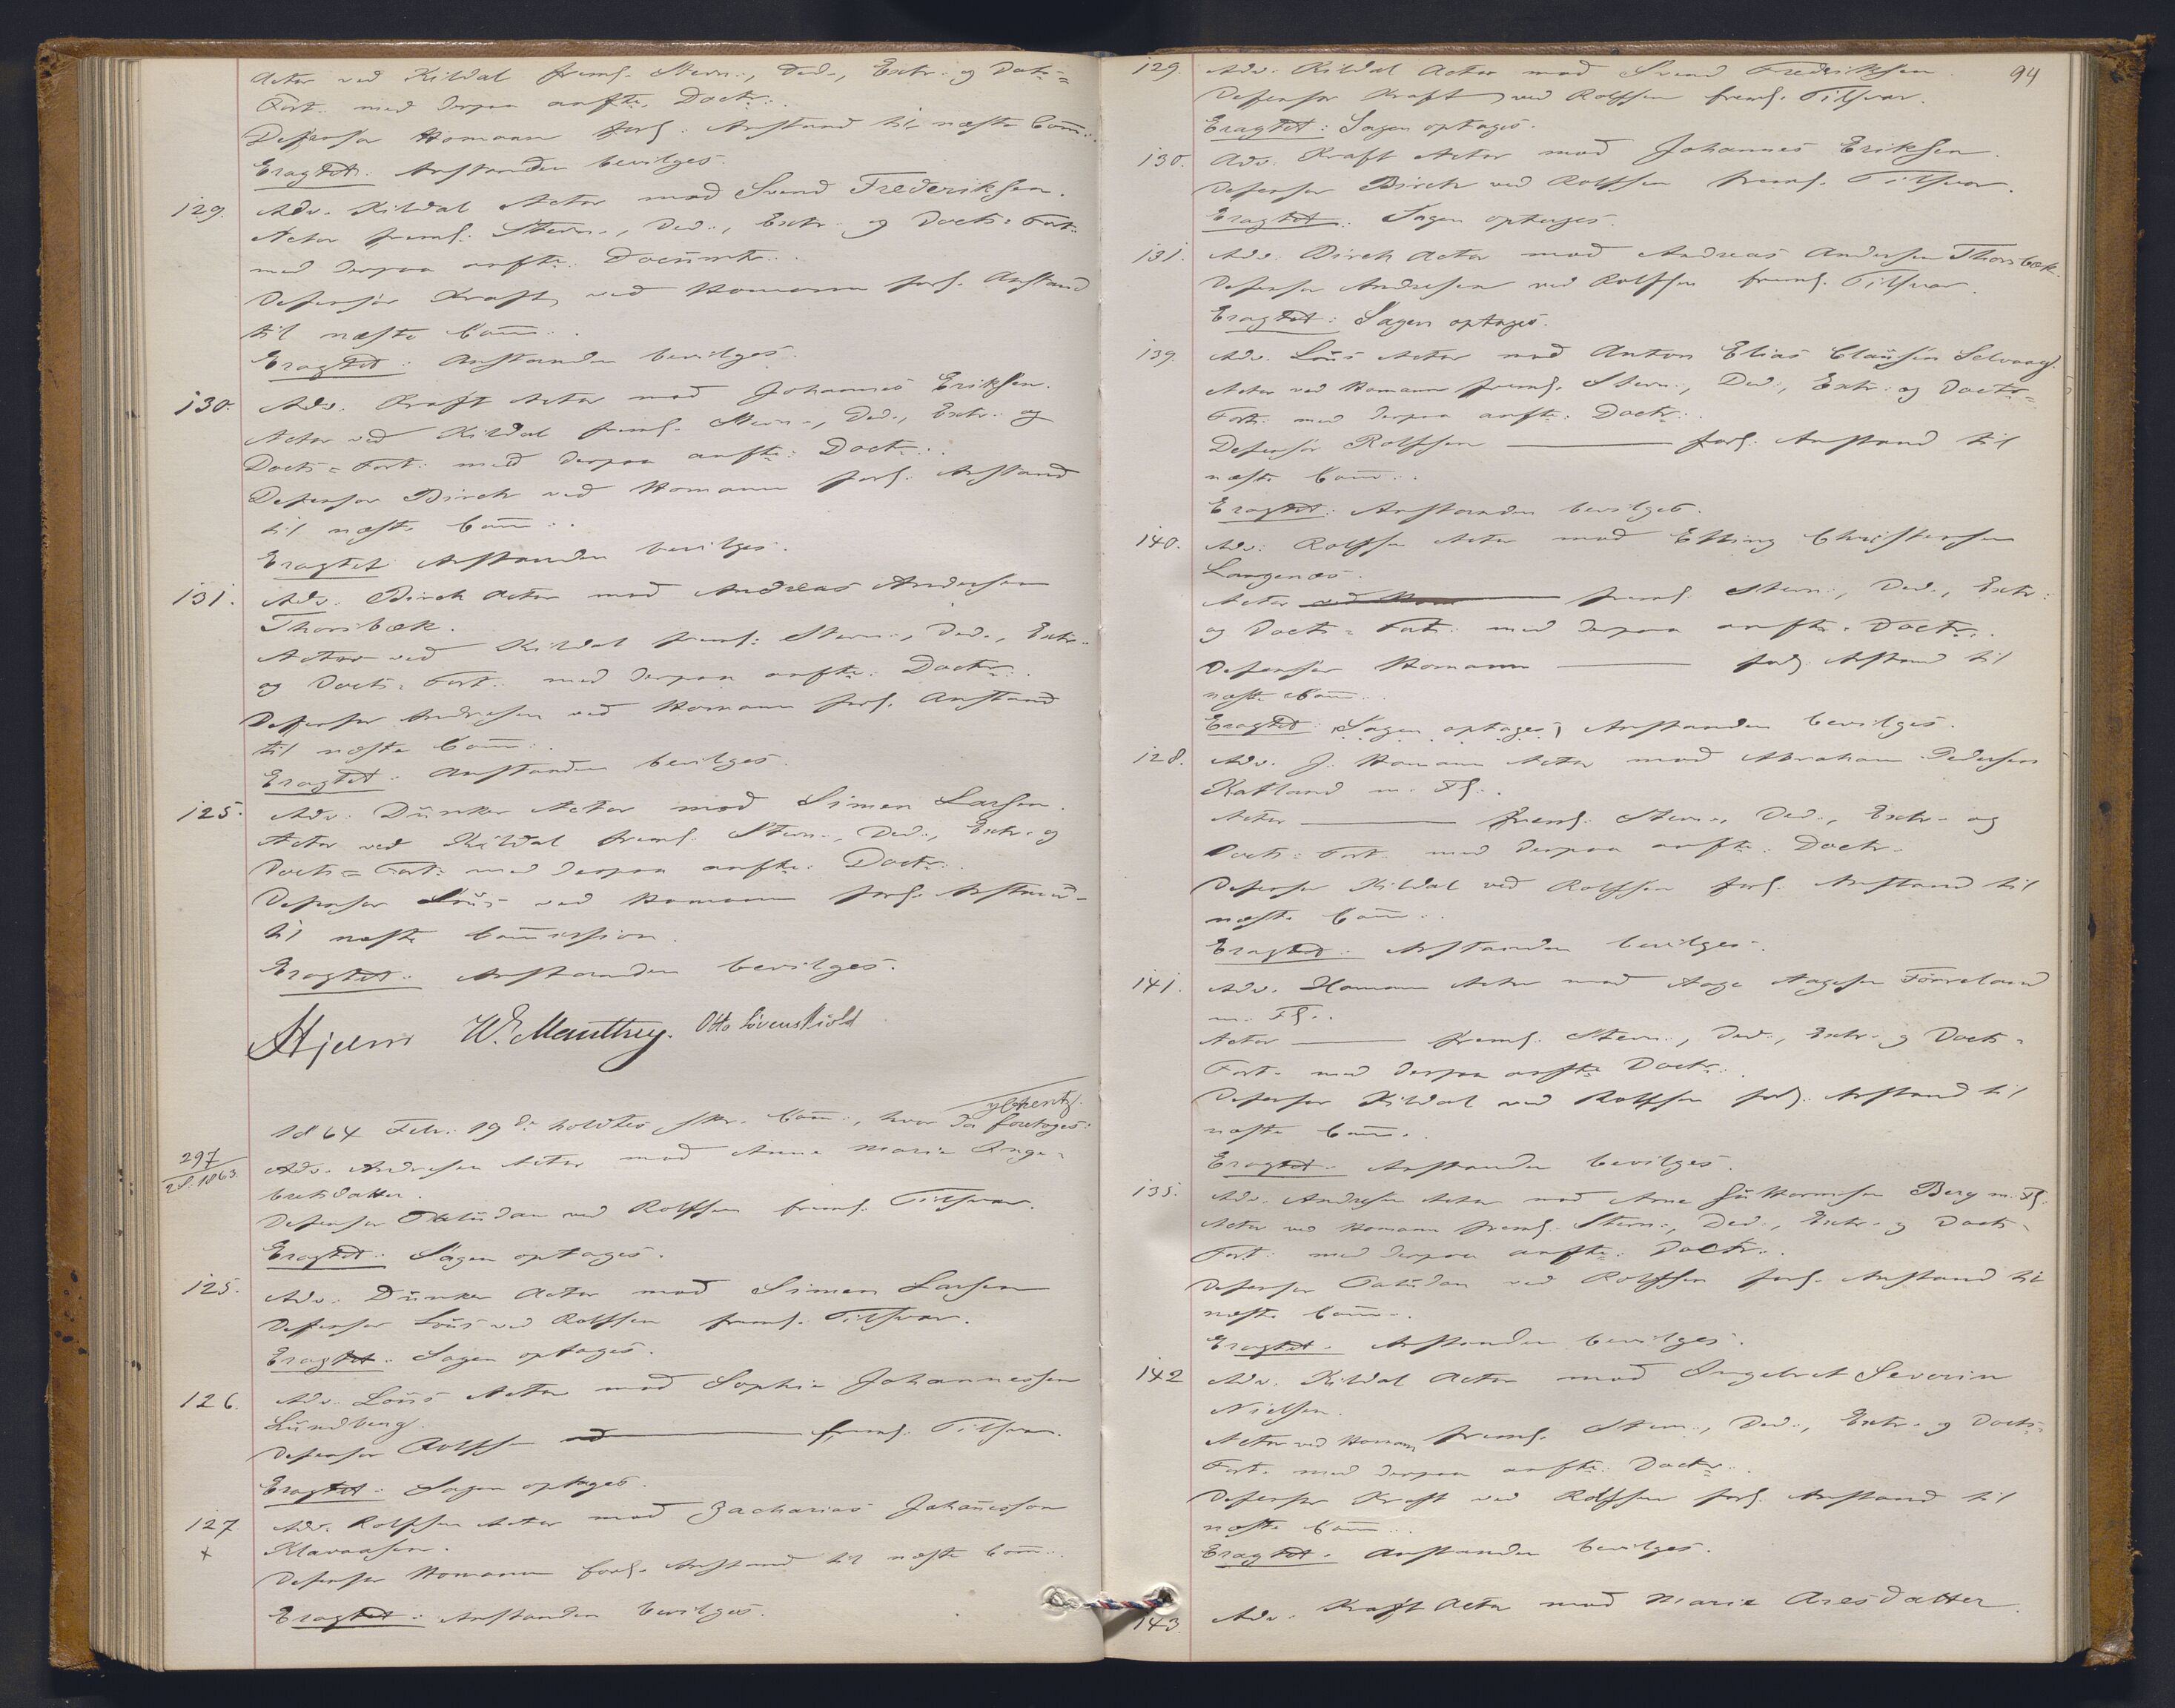 Actor ved Kildal freml. Stevn:, Ded:, Extr: og Docts=
Fort: med derpaa anfte: Doctr:.
Defensor Homann forl: Anstand til næste Comm:.
Eragtet: Anstanden bevilges.
129. Adv. Kildal Actor mod Svend Frederiksen.
Actor freml. Stevn:, Ded:, Extr: og Docts=Fort:
med derpaa anfte: Documtr:.
Defensor Kraft ved Homann forl. Anstand
til næste Comm:.
Eragtet: Anstanden bevilges.
130. Adv. Kraft Actor mod Johannes Eriksen.
Actor ved Kildal freml. Stevn:, Ded:, Extr: og
Docts=Fort: med derpaa anfte: Doctr:.
Defensor Birch ved Homann forl. Anstand
til næste Comm:.
Eragtet Anstanden bevilges.
131. Adv. Birch Actor mod Andreas Andersen
Thorsbæk.
Actor ved Kildal freml: Stevn:, Ded:, Extr:
og Docts=Fort: med derpaa anfte: Doctr:.
Defensor Andresen ved Homann forl. Anstand
til næste Comm:.
Eragtet: Anstanden bevilges.
125. Adv. Dunker Actor mod Simen Larsen.
Actor ved Kildal freml. Stevn:, Ded:, Extr: og
Docts=Fort: med derpaa anfte: Doctr:.
Defensor Lous ved Homann forl. Anstand
til næste Commission.
Eragtet: Anstanden bevilges.
Hjelm W. Manthey. Otto Løvenskiold
1864 Febr: 19de holdtes Comm:, hvor da foretoges:
297
28.1863. Adv. Andresen Actor mod Anne Marie Inge=
bretsdatter.
Defensor Paludan ved Rolfsen freml. Tilsvar.
Eragtet: Sagen optages.
125. Adv. Dunker Actor mod Simen Larsen
Defensor Lous ved Rolfsen freml. Tilsvar.
Eragtet: Sagen optages.
126. Adv. Lous Actor mod Sophie Johannessen
Lundberg.
Defensor Rolfsen freml. Tilsvar.
Eragtet: Sagen optages.
127 Adv. Rolfsen Actor mod Zacharias Johannesson
x Klavaasen.
Defensor Homann forl. Anstand til næste Comm:.
Eragtet: Anstanden bevilges.
94
129. Adv. Kildal Actor mod Svend Frederiksen
Defensor Kraft ved Rolfsen freml. Tilsvar.
Eragtet: Sagen optages.
130. Adv. Kraft Actor mod Johannes Eriksen.
Defensor Birch ved Rolfsen freml. Tilsvar.
Eragtet: Sagen optages.
131. Adv. Birch Actor mod Andreas Andersen Thorsbæk.
Defensor Andresen ved Rolfsen freml. Tilsvar.
Eragtet: Sagen optages.
139. Adv. Lous Actor mod Anton Elias Clausen Selvaag.
Actor ved Homann freml. Stevn:, Ded:, Extr: og Docts=
Fort: med derpaa anfte: Doctr:.
Defensor Rolfsen forl: Anstand til
næste Comm:.
Eragtet: Anstanden bevilges.
140. Adv: Rolfsen Actor mod Elling Christensen
Langenæs.
Actor freml. Stevn:, Ded:, Extr:
og Docts=Fort: med derpaa anfte: Doctr:.
Defensor Homann forl. Anstand til
næste Comm:.
Eragtet: Sagen optages, Anstanden bevilges.
128. Adv. J. Homann Actor mod Abraham Pedersen
Katland m. Fl:.
Actor freml. Stevn:, Ded:, Extr: og
Docts=Fort: med derpaa anfte: Doctr:
Defensor Kildal ved Rolfsen forl. Anstand til
næste Comm:.
Eragtet: Anstanden bevilges.
141. Adv. Homann Actor mod Aage Aagesen Førreland
m. Fl:.
Actor freml. Stevn:, Ded:, Extr: og Docts=
Fort: med derpaa anfte: Doctr:.
Defensor Kildal ved Rolfsen forl. Anstand til
næste Comm:.
Eragtet: Anstanden bevilges.
135. Adv. Andresen Actor mod Arne Guttormsen Berg m. Fl:
Actor ved Homann freml. Stevn:, Ded:, Extr: og Docts=
Fort: med derpaa anfte: Doctr:.
Defensor Paludan ved Rolfsen forl. Anstand til
næste Comm:.
Eragtet: Anstanden bevilges.
142 Adv. Kildal Actor mod Ingebret Severin
Nielsen.
Actor ved Homann freml. Stevn:, Ded:, Extr: og Docts=
Fort: med derpaa anfte: Doctr:.
Defensor Kraft ved Rolfsen forl. Anstand til
næste Comm:.
Eragtet: Anstanden bevilges.
143. Adv. Kraft Actor mod Marie Aresdatter.